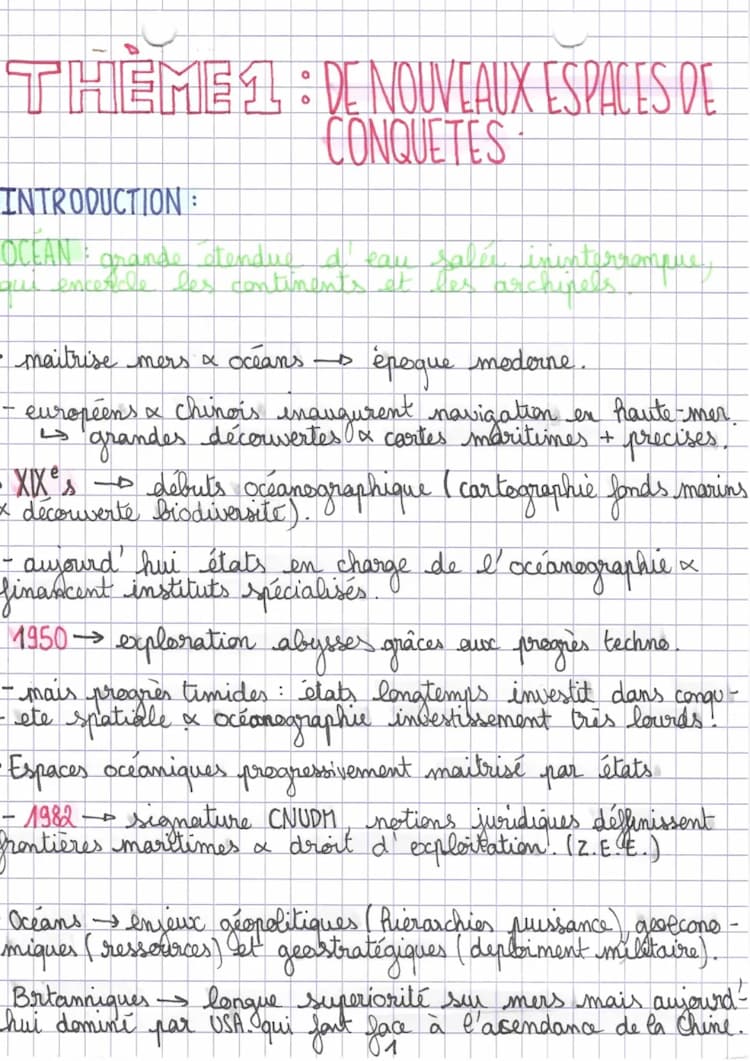 THÈME 1 : DE NOUVEAUX ESPACES DE
CONQUETES.
INTRODUCTION :
OCÉAN : grande étendue d'eau salée ininterrompue,
qui encercle les continents et les archipels.
- maitrise mers & océans → époque moderne.
- européens & chinois inaugurent navigation en haute-mer.
↳ grandes découvertes & cartes maritimes + precises.
XIXe s → débuts océanographique (cartographie fonds marins
& découverte biodiversité).
- aujourd'hui états en charge de l'océanographie &
financent instituts spécialisés.
1950 → exploration abysses grâces aux progrès techno.
- mais progrès timides : états longtemps investit dans conqu-
- ete spatiale & océanographie investissement très lourds !
Espaces océaniques progressivement maitrisé par états
- 1982 → signature CNUDM, notions juridiques définissent
frontières maritimes & droit d'exploitation. (Z.E.E.)
Océans → enjeux géopolitiques (hiérarchies puissance), geoécono-
miques (ressources) et geostratégiques (deploiment militaire).
Britanniques → longue superiorité sur mers mais aujourd'-
hui dominé par USA qui font face à l'asendance de la Chine.
1